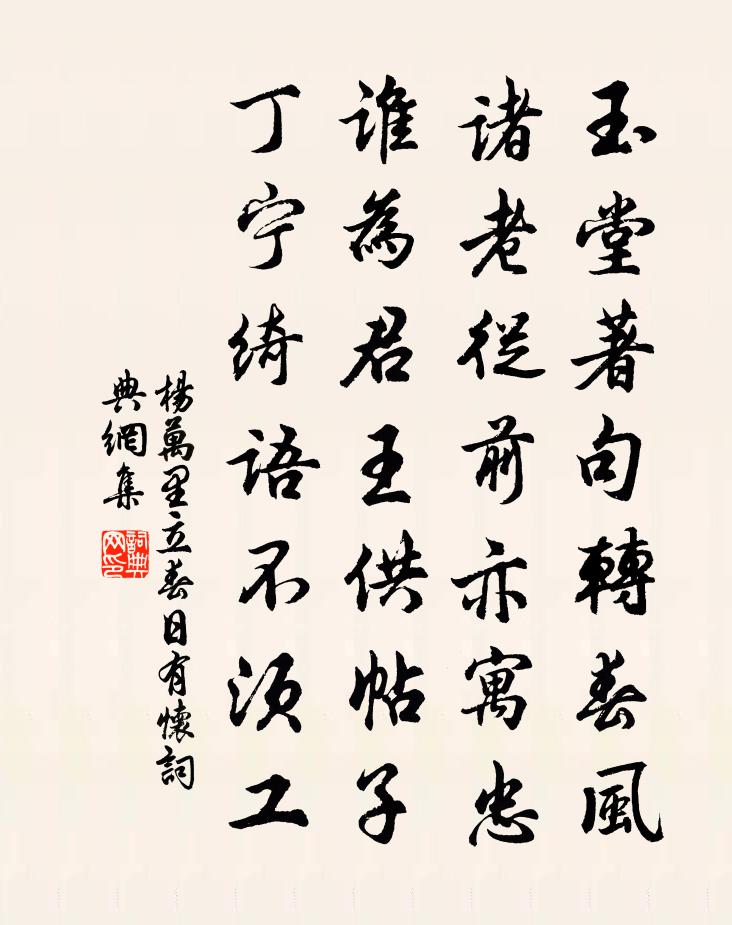 玉堂著句轉春風
諸老從前亦寓忠
誰為君王供帖子
丁宁綺語不須工
楊萬里立春日有懷詞
典網集
詞典
网印